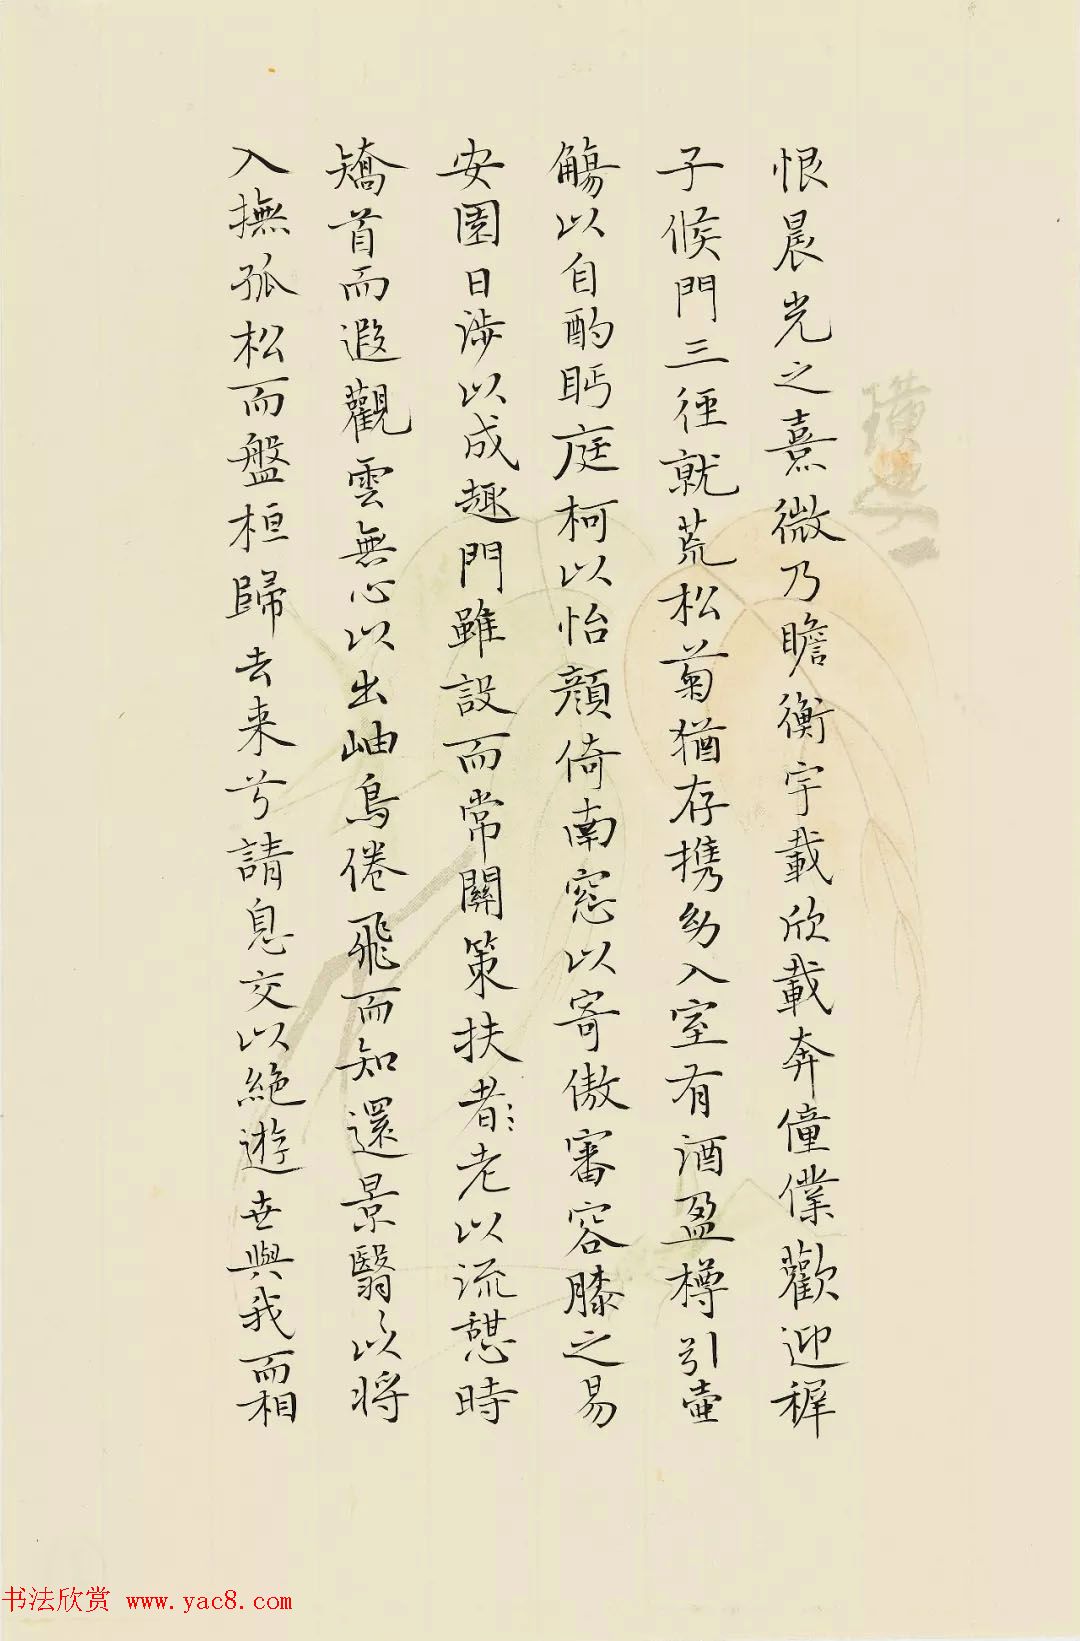 恨晨光之熹微乃瞻衡宇載欣載奔僮僕歡迎稺
子候門三徑就荒松菊猶存携幼入室有酒盈樽引壺
觴以自酌眄庭柯以怡顔倚南窓以寄傲審容膝之易
安園日涉以成趣門雖設而常關策扶者老以流憩時
矯首而遐觀雲無心以出岫鳥倦飛而知還景翳以將
入撫孤松而盤桓歸去来兮請息交以絶遊世與我而相
书法欣赏 www.yac8.com